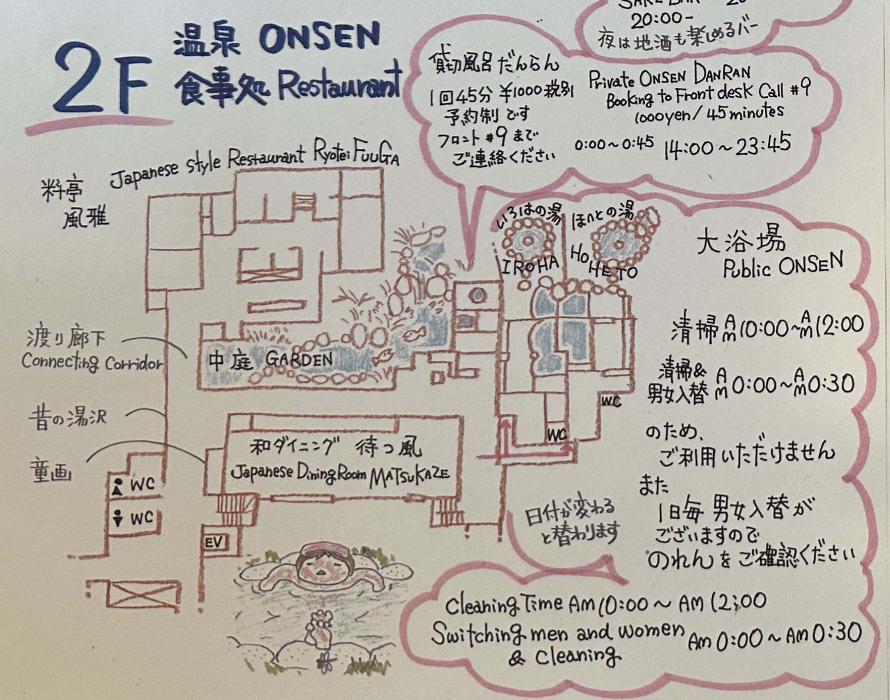 2F
温泉 ONSEN
食事処 Restaurant
20:00-
夜は地酒も楽しめるバー
貸切風呂だんらん
1回45分 ¥1000税別
予約制です
フロント#9まで
ご連絡ください
Private ONSEN DANRAN
Booking to Front desk Call #9
1000yen/45minutes
0:00~0:45 14:00~23:45
料亭
風雅
Japanese style Restaurant Ryotei FUUGA
いろはの湯
IROHA
ほへとの湯
HOHETO
大浴場
Public ONSEN
清掃 AM10:00~AM12:00
清掃&
男女入替 AM0:00~AM0:30
のため、
ご利用いただけません
また
1日毎 男女入替が
ございますので
のれんをご確認ください
渡り廊下
Connecting Corridor
中庭 GARDEN
昔の湯沢
童画
和ダイニング 待つ風
Japanese Dining Room MATSUKAZE
WC
WC
WC
WC
EV
日付が変わる
と替わります
Cleaning Time AM 10:00 ~ AM 12:00
Switching men and women
& Cleaning
AM 0:00 ~ AM 0:30